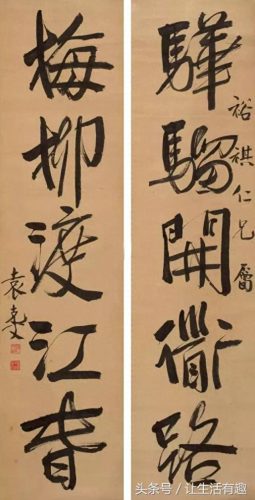 驊騮開衟路
裕祺仁兄屬
梅柳渡江旾
袁克文
头条号／让生活有趣